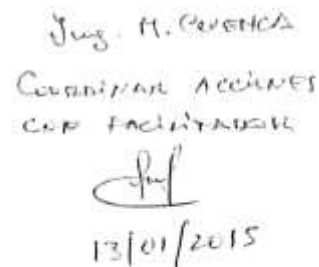 Ing. M. CUENCA
COORDINAR ACCIONES
CON FACILITADOR
13/01/2015